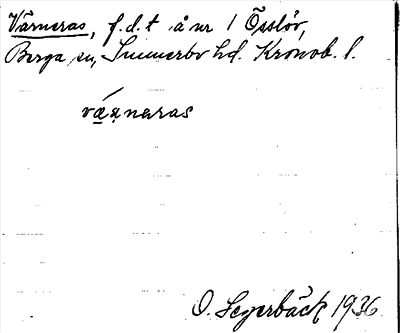 Värneras, f.d.t å nr 1 Össlöv,
Berga sn, Sunnerbo hd. Kronob. l.
væṇnaras
O. Segerbäck 1936